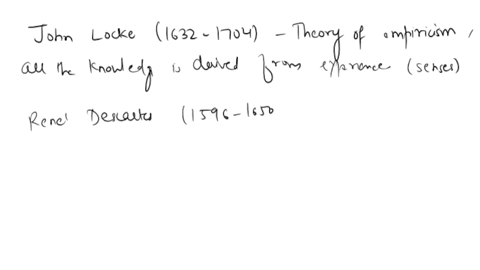 John Locke (1632-1704) - Theory of empiricism,
all the knowledg is derived from exprence (senses)
René Descartes (1596-1650